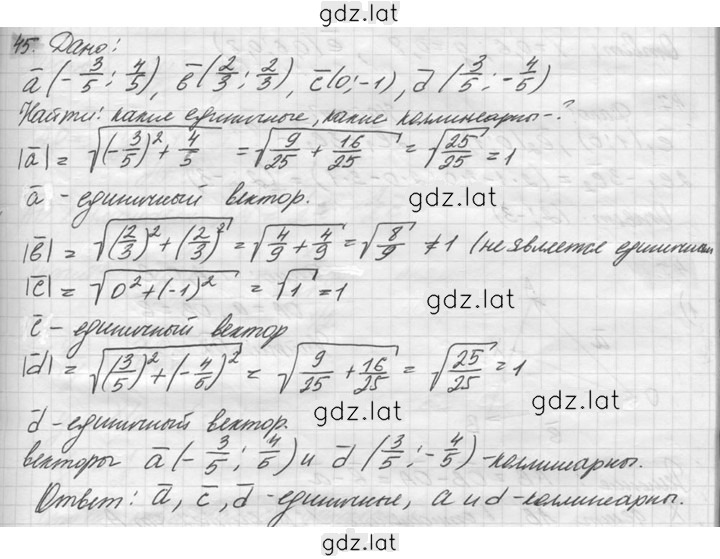 gdz.lat
45. Дано:
a̅(-3/5; 4/5), b̅(2/3; 2/3), c̅(0;-1), d̅(3/5; -4/5)
Найти: какие единичные, какие коллинеарны-?
|a̅| = √((-3/5)² + 4/5) = √(9/25 + 16/25) = √(25/25) = 1
a̅ - единичный вектор.
gdz.lat
|b̅| = √((2/3)² + (2/3)²) = √(4/9 + 4/9) = √(8/9) ≠ 1 (не является единичным
|c̅| = √(0² + (-1)²) = √1 = 1
gdz.lat
c̅ - единичный вектор
|d̅| = √((3/5)² + (-4/5)²) = √(9/25 + 16/25) = √(25/25) = 1
d̅ - единичный вектор.
gdz.lat
векторы a̅(-3/5; 4/5) и d̅(3/5; -4/5) - коллинеарны.
Ответ: a̅, c̅, d̅ - единичные, a и d - коллинеарны.
gdz.lat